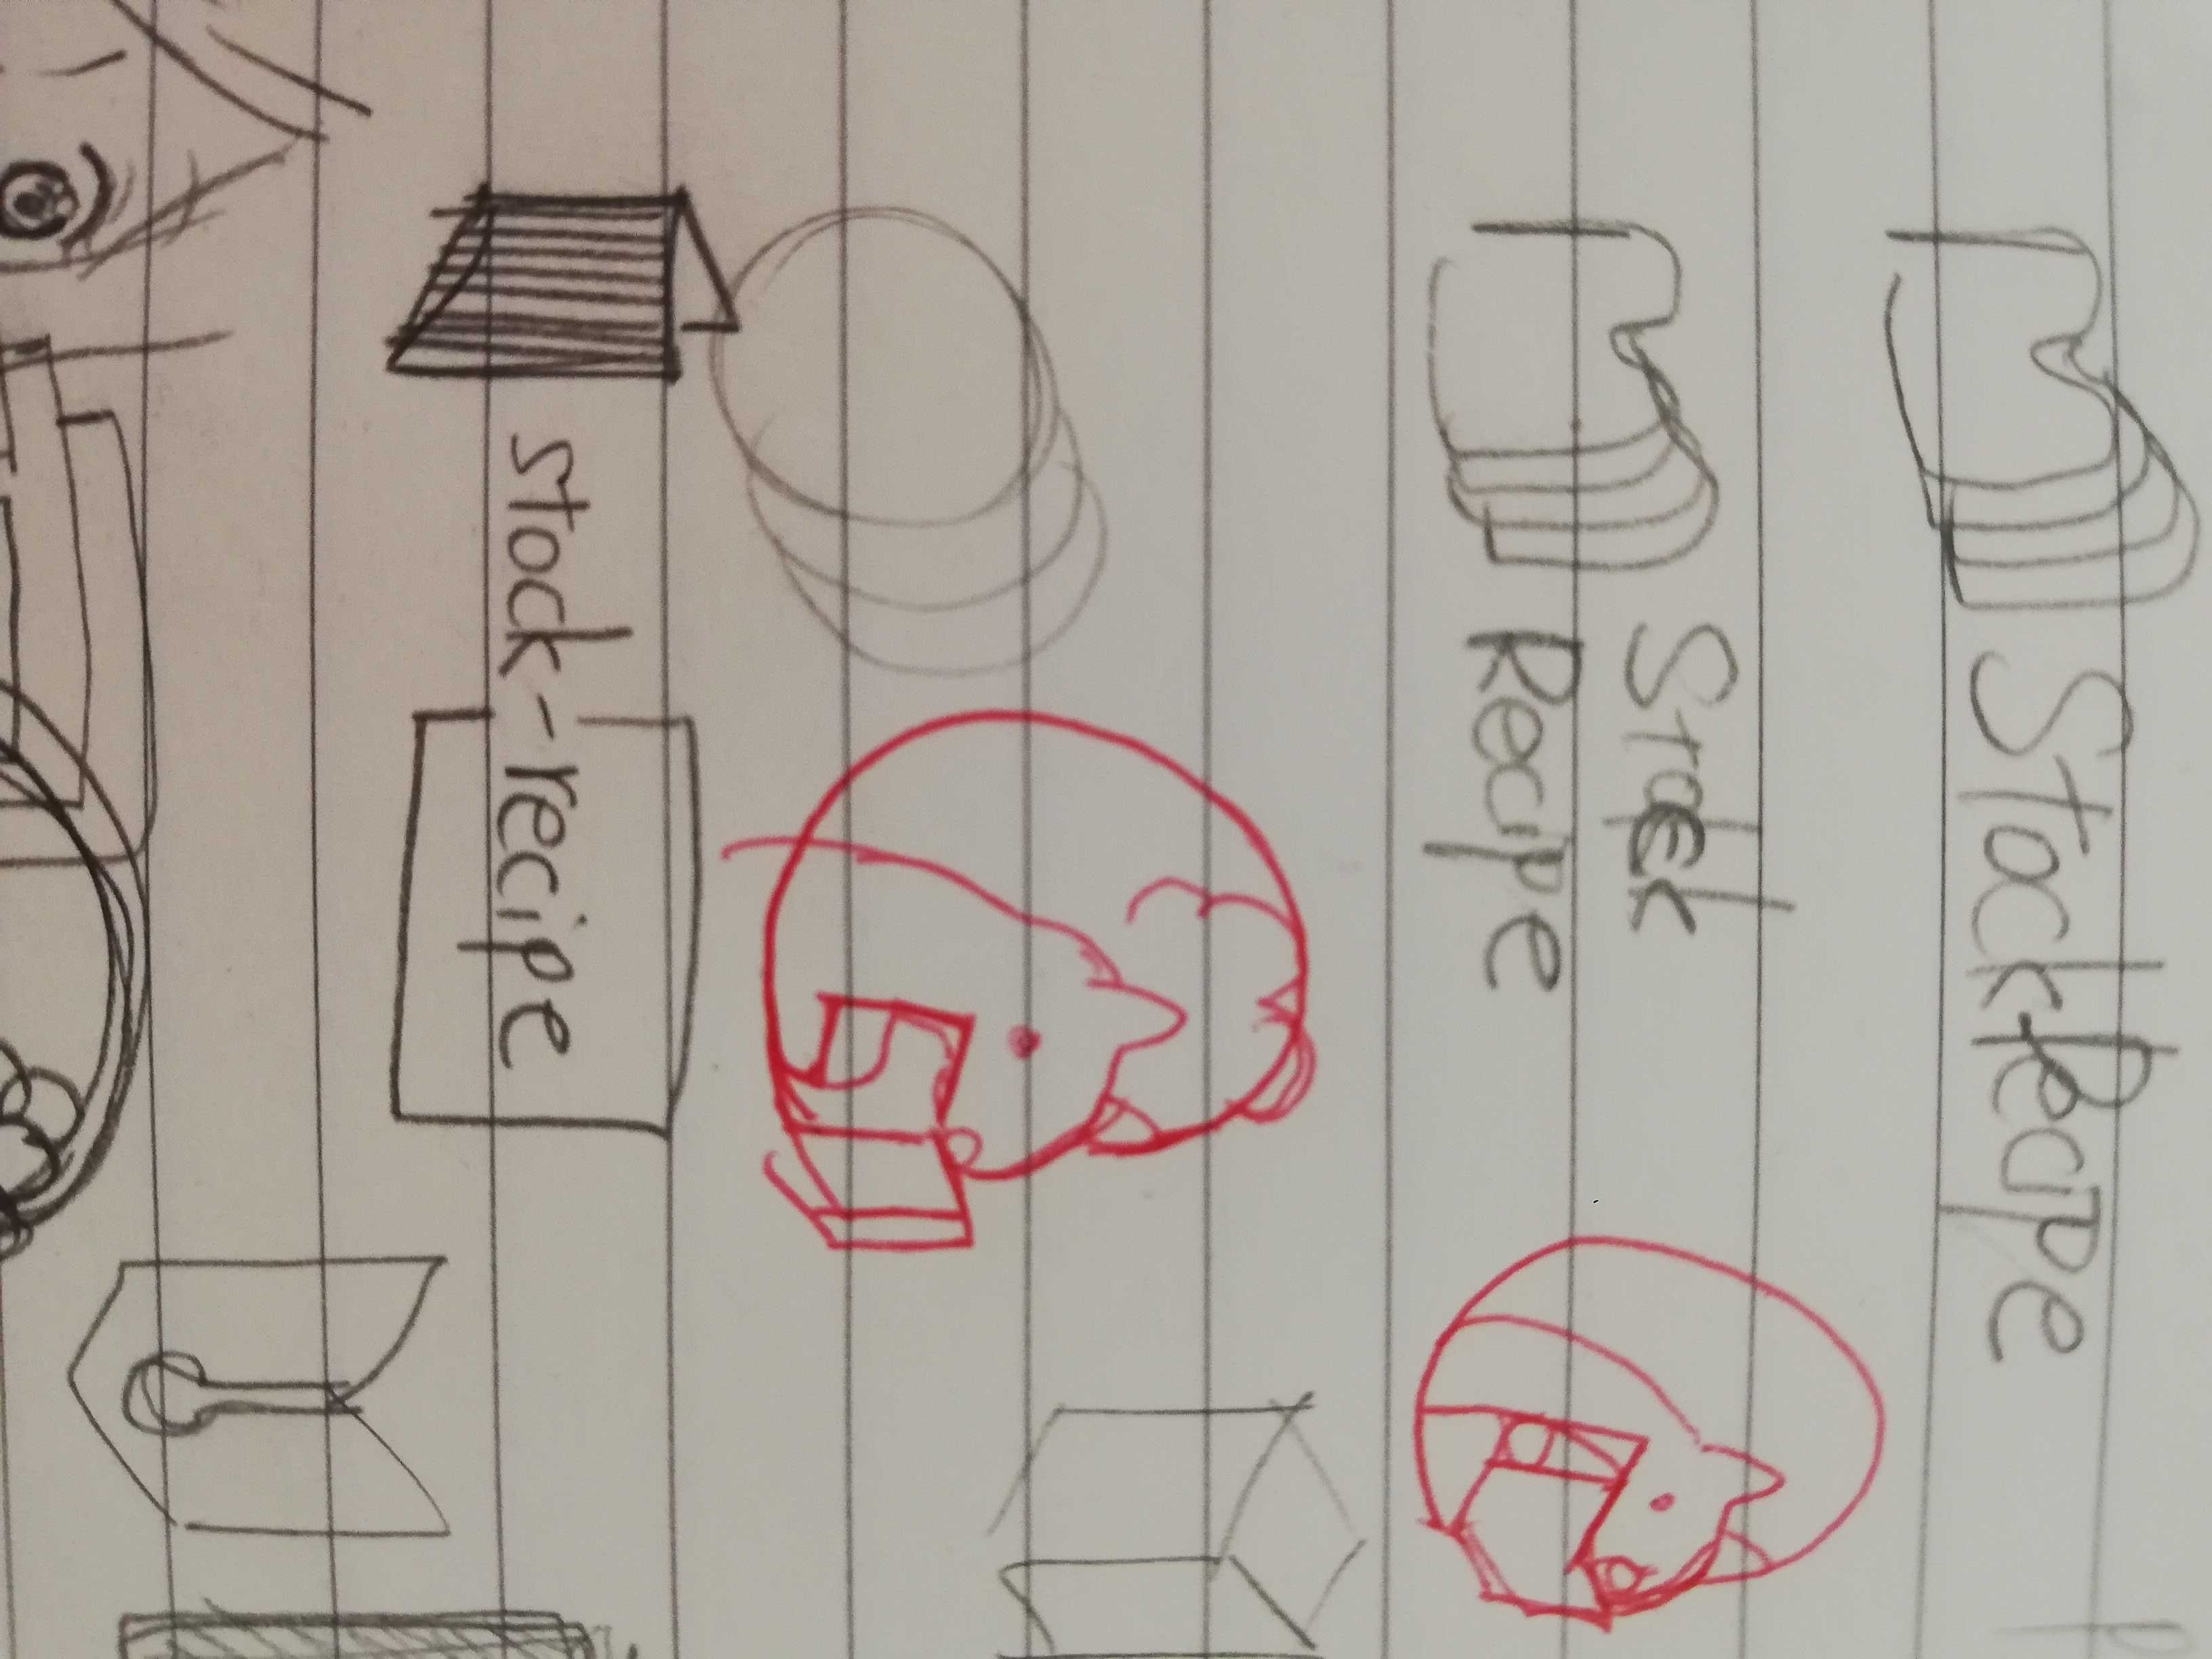 StockRecipe
Stock
Recipe
stock-recipe